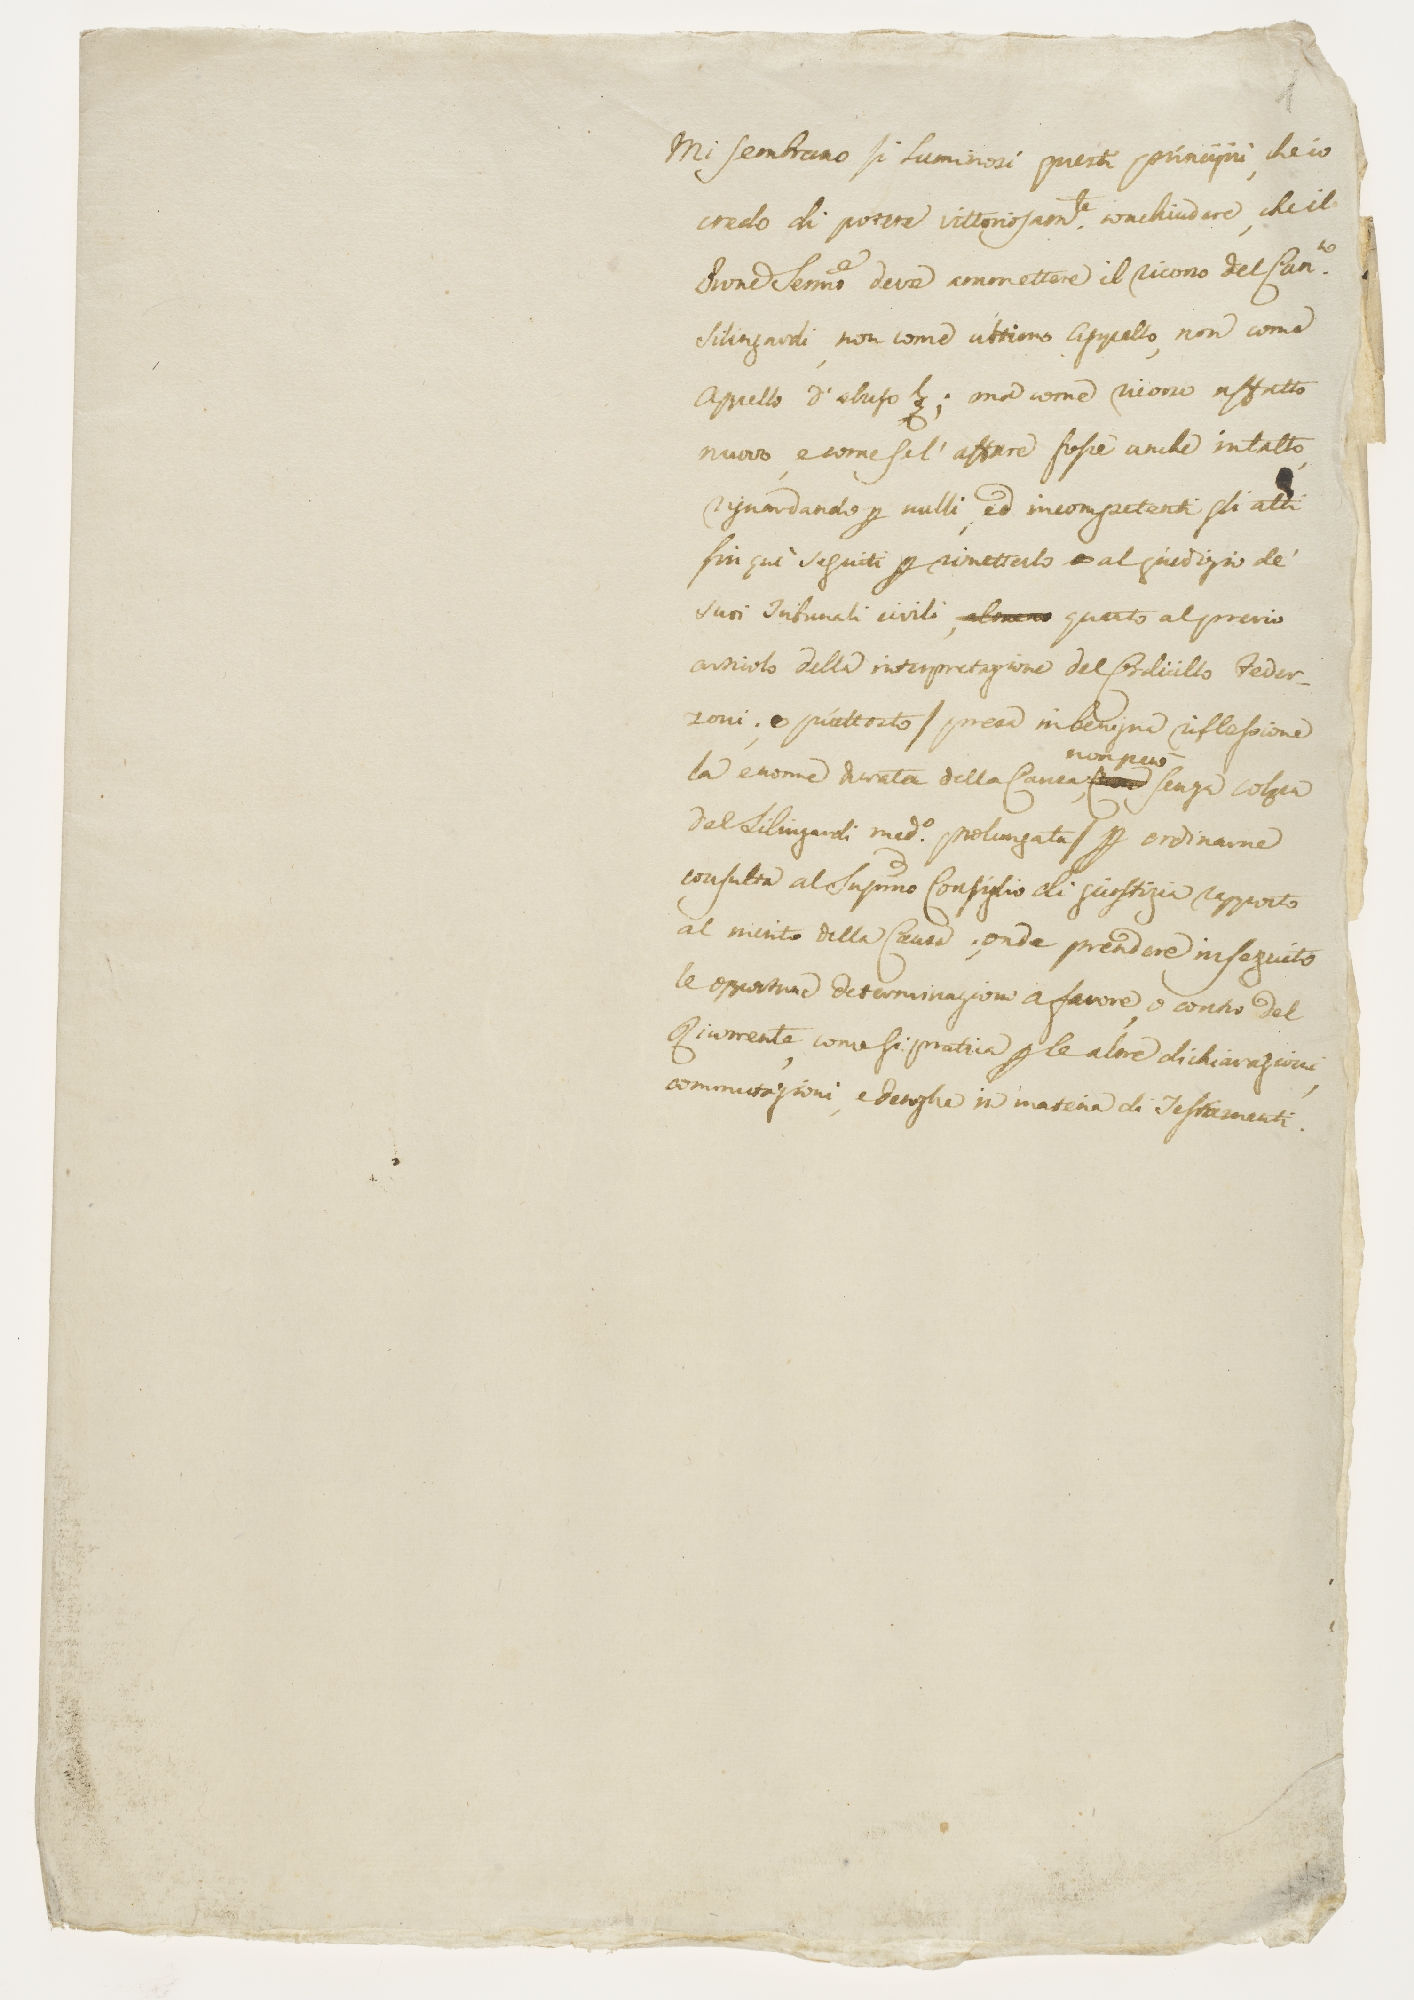 1
Mi sembrano sì luminosi questi principii, che io
credo di potere vittoriosam.te conchiudere, che il
Prone Sermo deve ammettere il ricorso del Can.co
Silingardi, non come ultimo Appello, non come
Appello d'abuso &; ma come ricorso affatto
nuovo, e come se l'affare fosse anche intatto,
riguardando p nulli, ed incompetenti gli atti
fin quì seguiti p rimetterlo al giudizio de'
suoi Tribunali civili, almeno quanto al previo
articolo della interpretazione del Codicillo Feder-
zoni; o piuttosto / presa in benigna riflessione
la enorme durata della Causa,
non però
senza colpa
del Silingardi med.o prolungata / p ordinarne
consulta al Supmo Consiglio di giustizia rapporto
al merito della Causa; onde prendere in seguito
le opportune determinazioni a favore, o contro del
Ricorrente, come si pratica p le altre dichiarazioni,
commutazioni, e deroghe in materia di Testamenti.